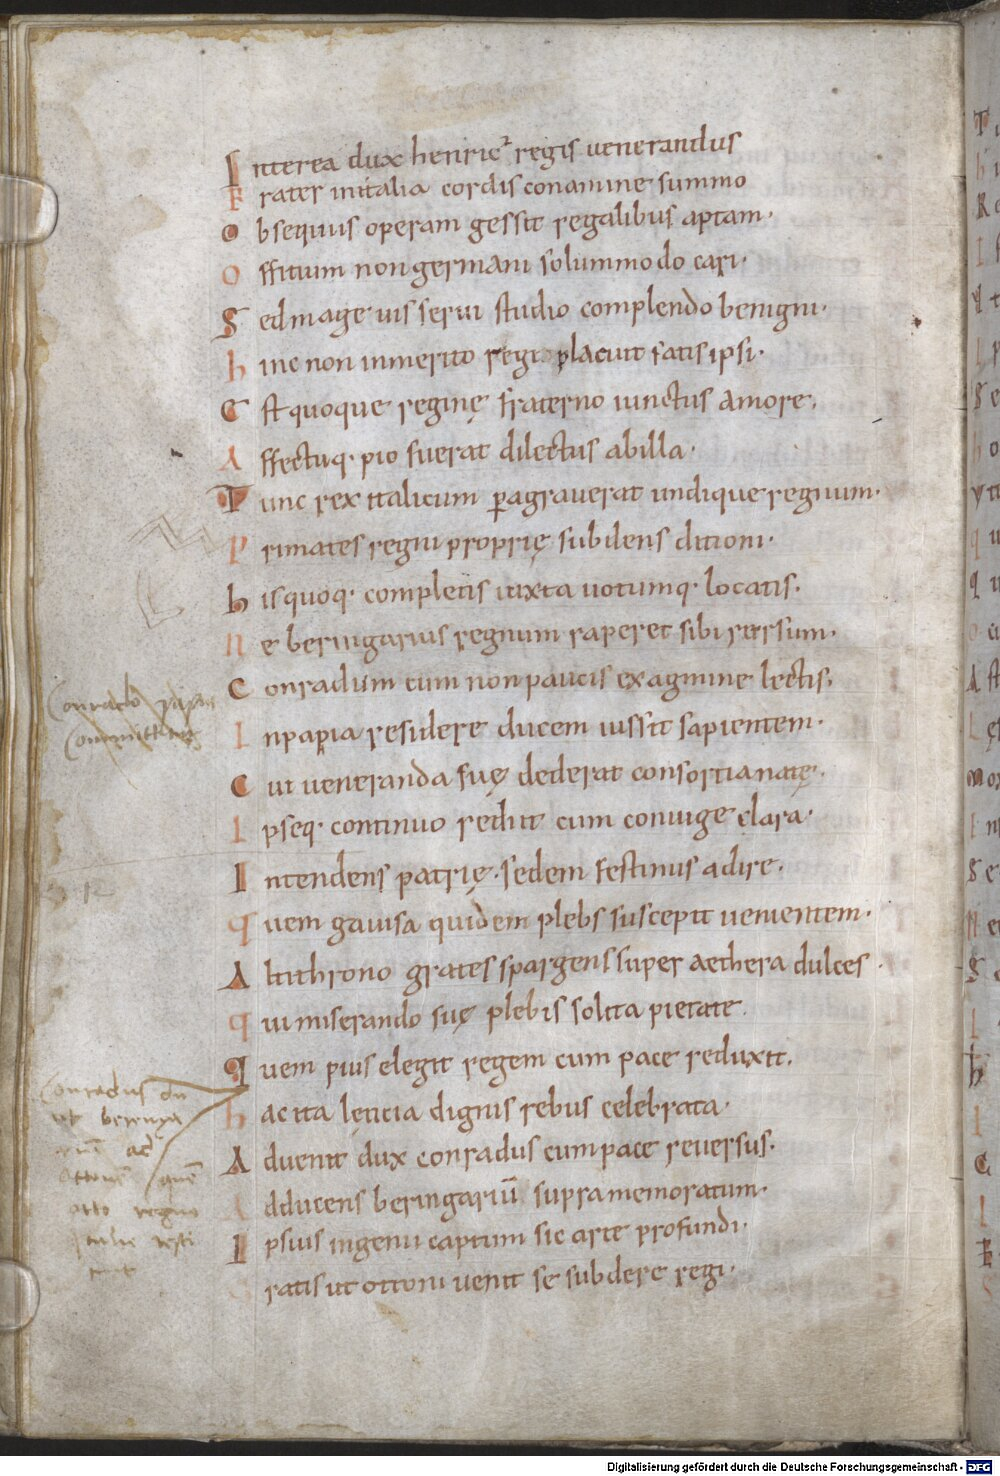 Interea dux henric² regis uenerandus
Frater initalia cordis conamine summo
Obsequiis operam gessit regalibus aptam·
Offitium non germani solummodo cari·
Sed mage uis serui studio complendo benigni·
hinc non inmerito regi placuit satis ipsi·
Est quoque reginę fraterno iunctus amore,
Affectuq· pio fuerat dilectus abilla·
Tunc rex italicum ꝑagrauerat undique regnum·
Primates regni proprię subdens ditioni·
hisquoq· completis iuxta uotumq· locatis·
Ne beringarius regnum raperet sibi rursum·
Conradum cum non paucis exagmine lectis,
Inpapia residere ducem iussit sapientem·
Cui ueneranda suę dederat consortia natę·
Ipseq· continuo rediit cum coniuge clara·
Intendens patrię· sedem festinus adire·
quem gauisa quidem plebs suscepit uenientem·
Altithrono grates spargens super aethera dulces·
qui miserando suę plebis solita pietate
quem pius elegit regem cum pace reduxit.
hac ita lęticia dignis rebus celebrata·
Aduenit dux conradus cum pace reuersus·
Adducens beringariū supra memoratum·
Ipsius ingenii captum sic arte profundi·
Sratis ut ottoni uenit se subdere regi·
Conrado papia
Committitur
Conradus du
cit berenga
riū ad
Ottonē quē
otto regno
italie resti
tuit
Digitalisierung gefördert durch die Deutsche Forschungsgemeinschaft - DFG